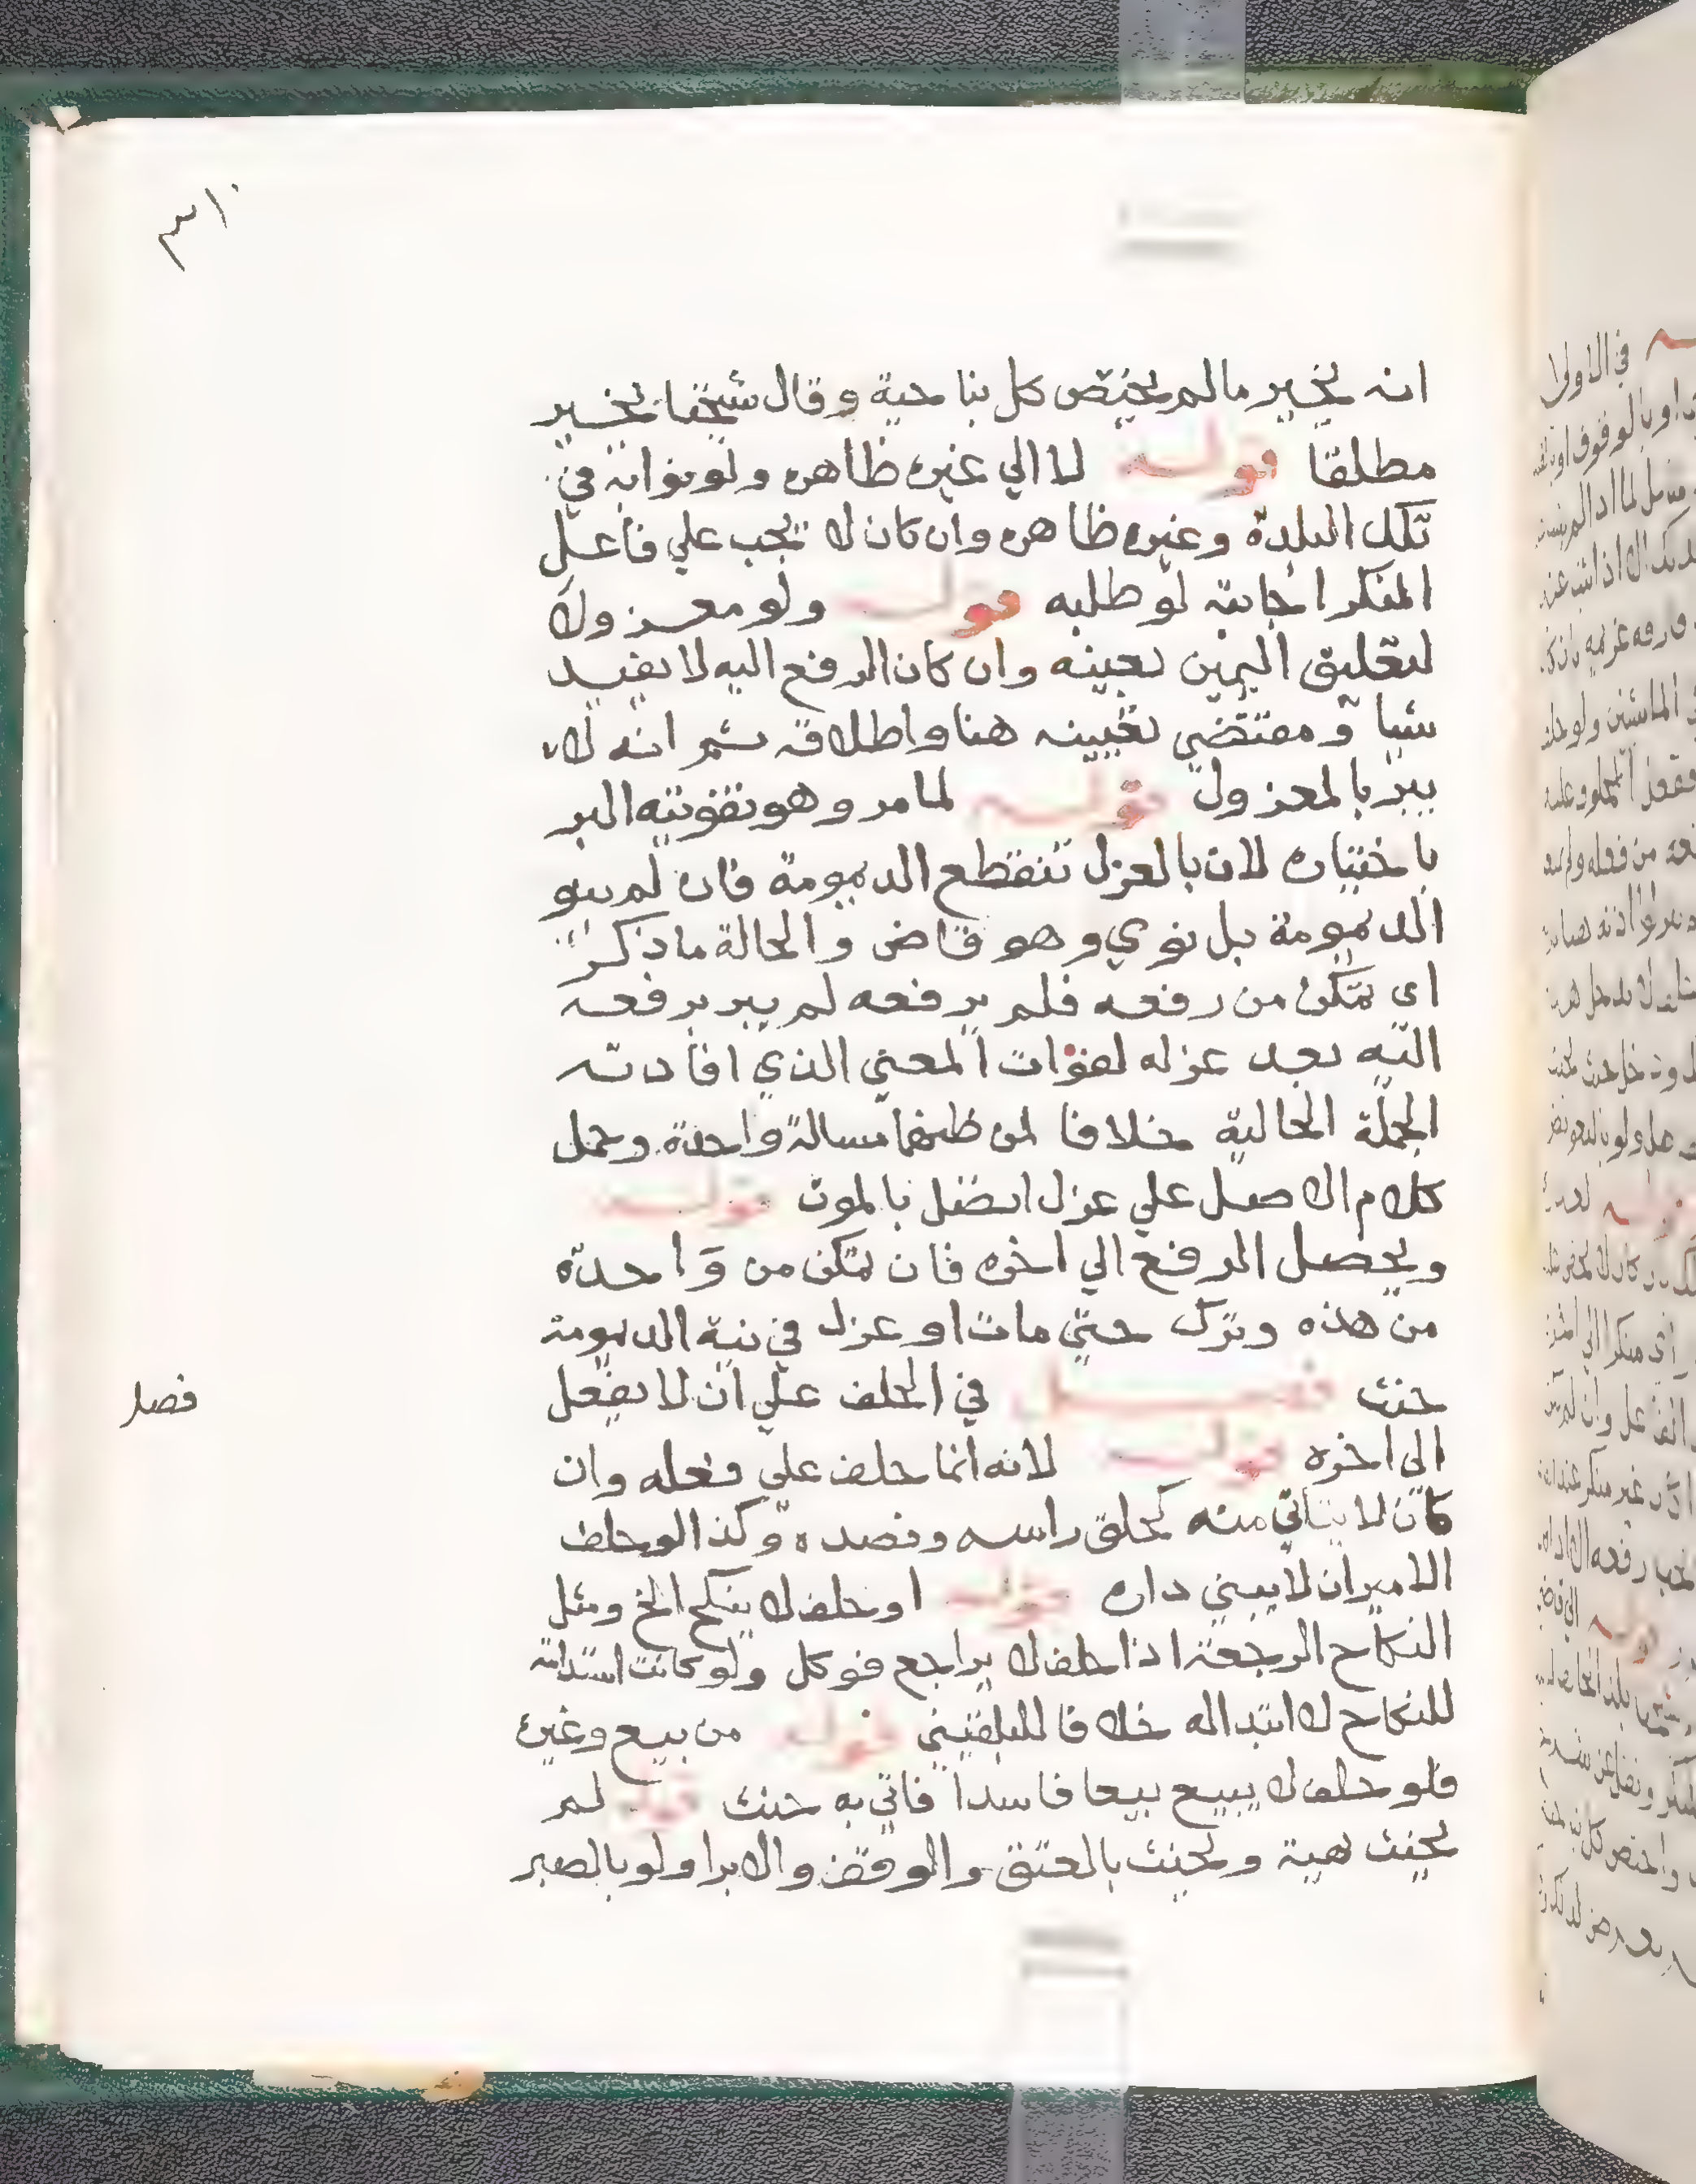 ٣١٠
انه يخير مالم يختص كل بناحية وقال شيخنا يخير
مطلقا قوله لا الي غيره ظاهره ولو نوابه في
تلك البلدة وغيره ظاهره وان كان لا تجب علي فاعل
المنكر اجابته لو طلبه قوله ولو معزولا
لتعليق اليمين بعينه وان كان الرفع اليه لا يفيد
شيا ومقتضي تعيينه هنا واطلاقه ثم انه لا
يبر بالمعزول قوله لما مر وهو تفويته البر
باختياره لان بالعزل تنقطع الديمومة فان لم ينو
الديمومة بل نوي وهو قاض والحالة ما ذكر
اي تمكن من رفعه فلم يرفعه لم يبر برفعه
اليه بعد عزله لفوات المعني الذي افادته
الجملة الحالية خلافا لمن ظنهما مسالة واحدة وحمل
كلام الاصل علي عزل اتصل بالموت قوله
ويحصل الرفع الي اخره فان تمكن من واحدة
من هذه وترك حتي مات او عزل في نية الديمومة
حنث فصل في الحلف علي ان لا يفعل
فصل
الي اخره قوله لانه انما حلف علي فعله وان
كان لا يتاتي منه كحلق راسه وفصده وكذا لو حلف
الامير ان لا يبني داره قوله او حلف لا ينكح الخ ومثل
النكاح الرجعة اذا حلف لا يراجع فوكل ولو كانت استدامة
للنكاح لا ابتدا له خلافا للبلقيني قوله من بيع وغيره
فلو حلف لا يبيع بيعا فاسدا فاتي به حنث قوله لم
يحنث بهبة ويحنث بالعتق والوقف والابرا ولو بالصبر